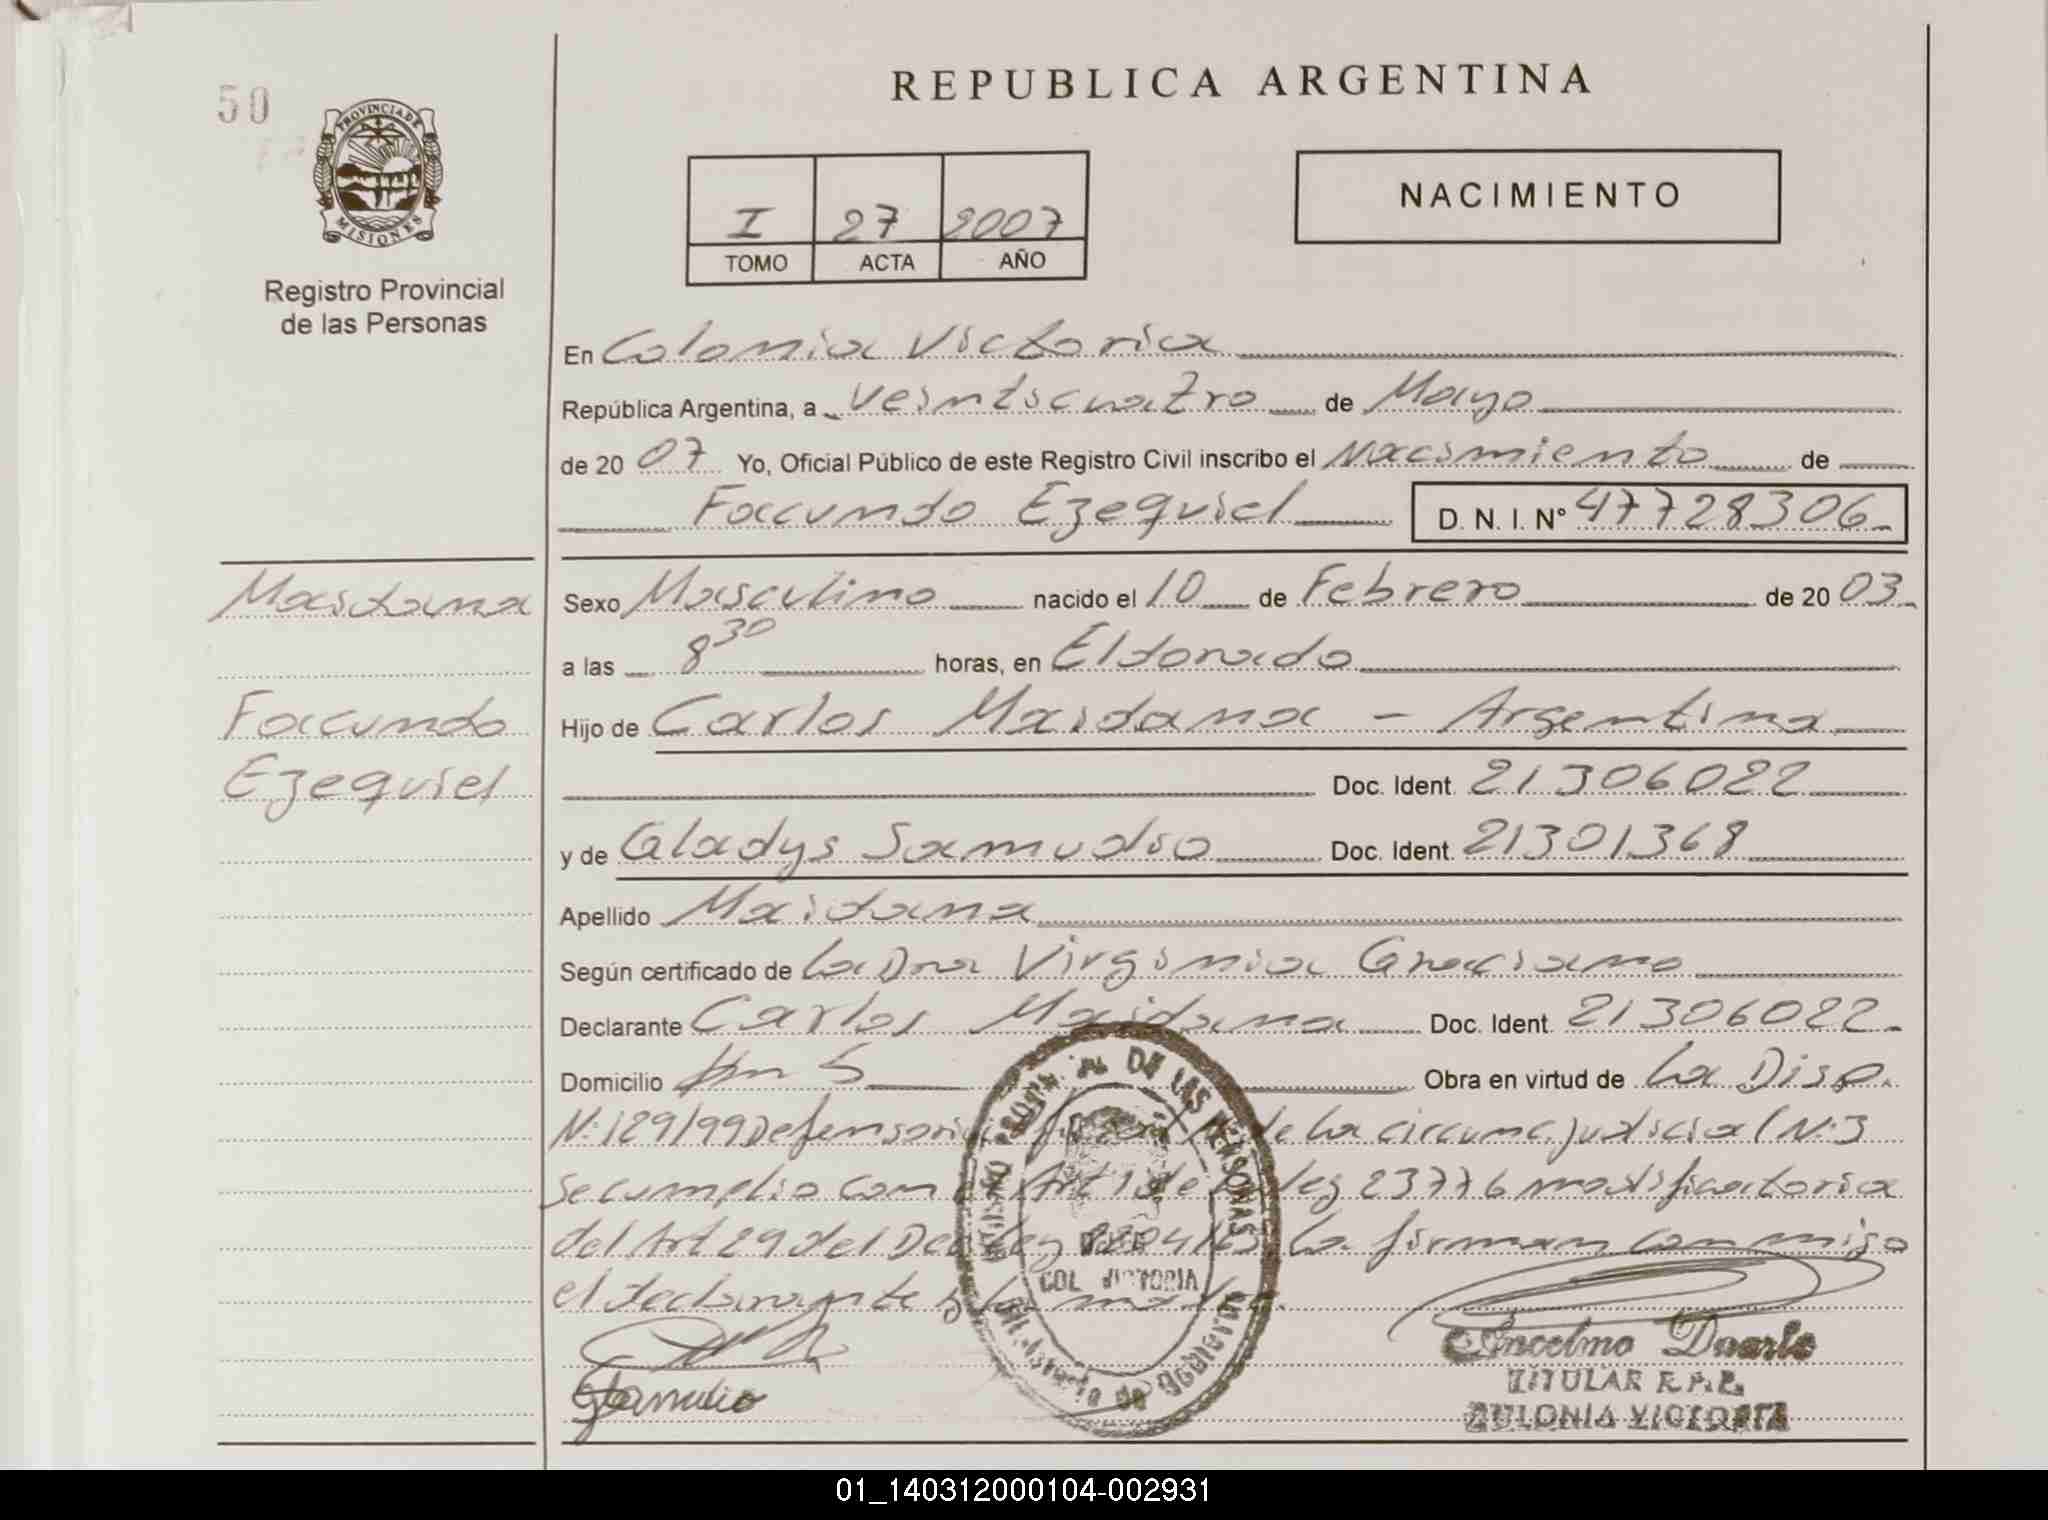 REPUBLICA ARGENTINA
50
PROVINCIA DE
MISIONES
Registro Provincial
de las Personas
NACIMIENTO
I 27 2007
TOMO ACTA AÑO
En Colonia Victoria
República Argentina, a Veinticuatro de Mayo
de 20 07 Yo, Oficial Público de este Registro Civil inscribo el Nacimiento de
Facundo Ezequiel D. N. I. N° 47728306
Maidana
Sexo Masculino nacido el 10 de Febrero de 20 03
a las 8 30 horas, en Eldorado
Facundo
Hijo de Carlos Maidana - Argentina
Ezequiel
Doc. Ident. 21306022
y de Gladys Samudio Doc. Ident. 21301368
Apellido Maidana
Según certificado de La Dra Virginia Graciano
Declarante Carlos Maidana Doc. Ident. 21306022
Domicilio Km 5 Obra en virtud de La Disp.
N: 129/99 Defensoria de la circunc. judicial N: 3
se cumplio con Art 1 de Ley 23776 modificatoria
del Art 29 del Dec Ley 8204/63 La firman conmigo
el declarante y la
GSamudio
DE LAS PERSONAS
COL VICTORIA
Ancelmo Duarte
TITULAR R.P.P.
COLONIA VICTORIA
01_140312000104-002931